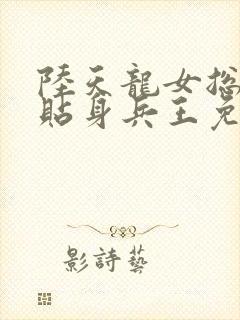 陸天龍女揔
貼身兵王免
影詩藝